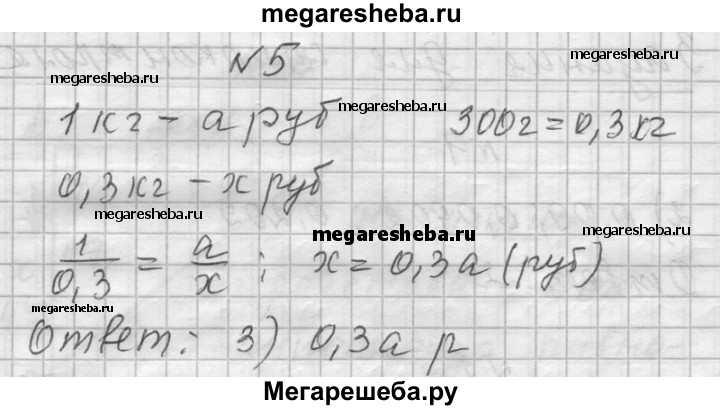 megaresheba.ru
№5
megaresheba.ru
megaresheba.ru
1 кг - а руб 300г = 0,3кг
0,3кг - х руб
megaresheba.ru
megaresheba.ru
1/0,3 = а/х ; х = 0,3а (руб)
megaresheba.ru
megaresheba.ru
megaresheba.ru
Ответ: 3) 0,3а р
Мегарешеба.ру